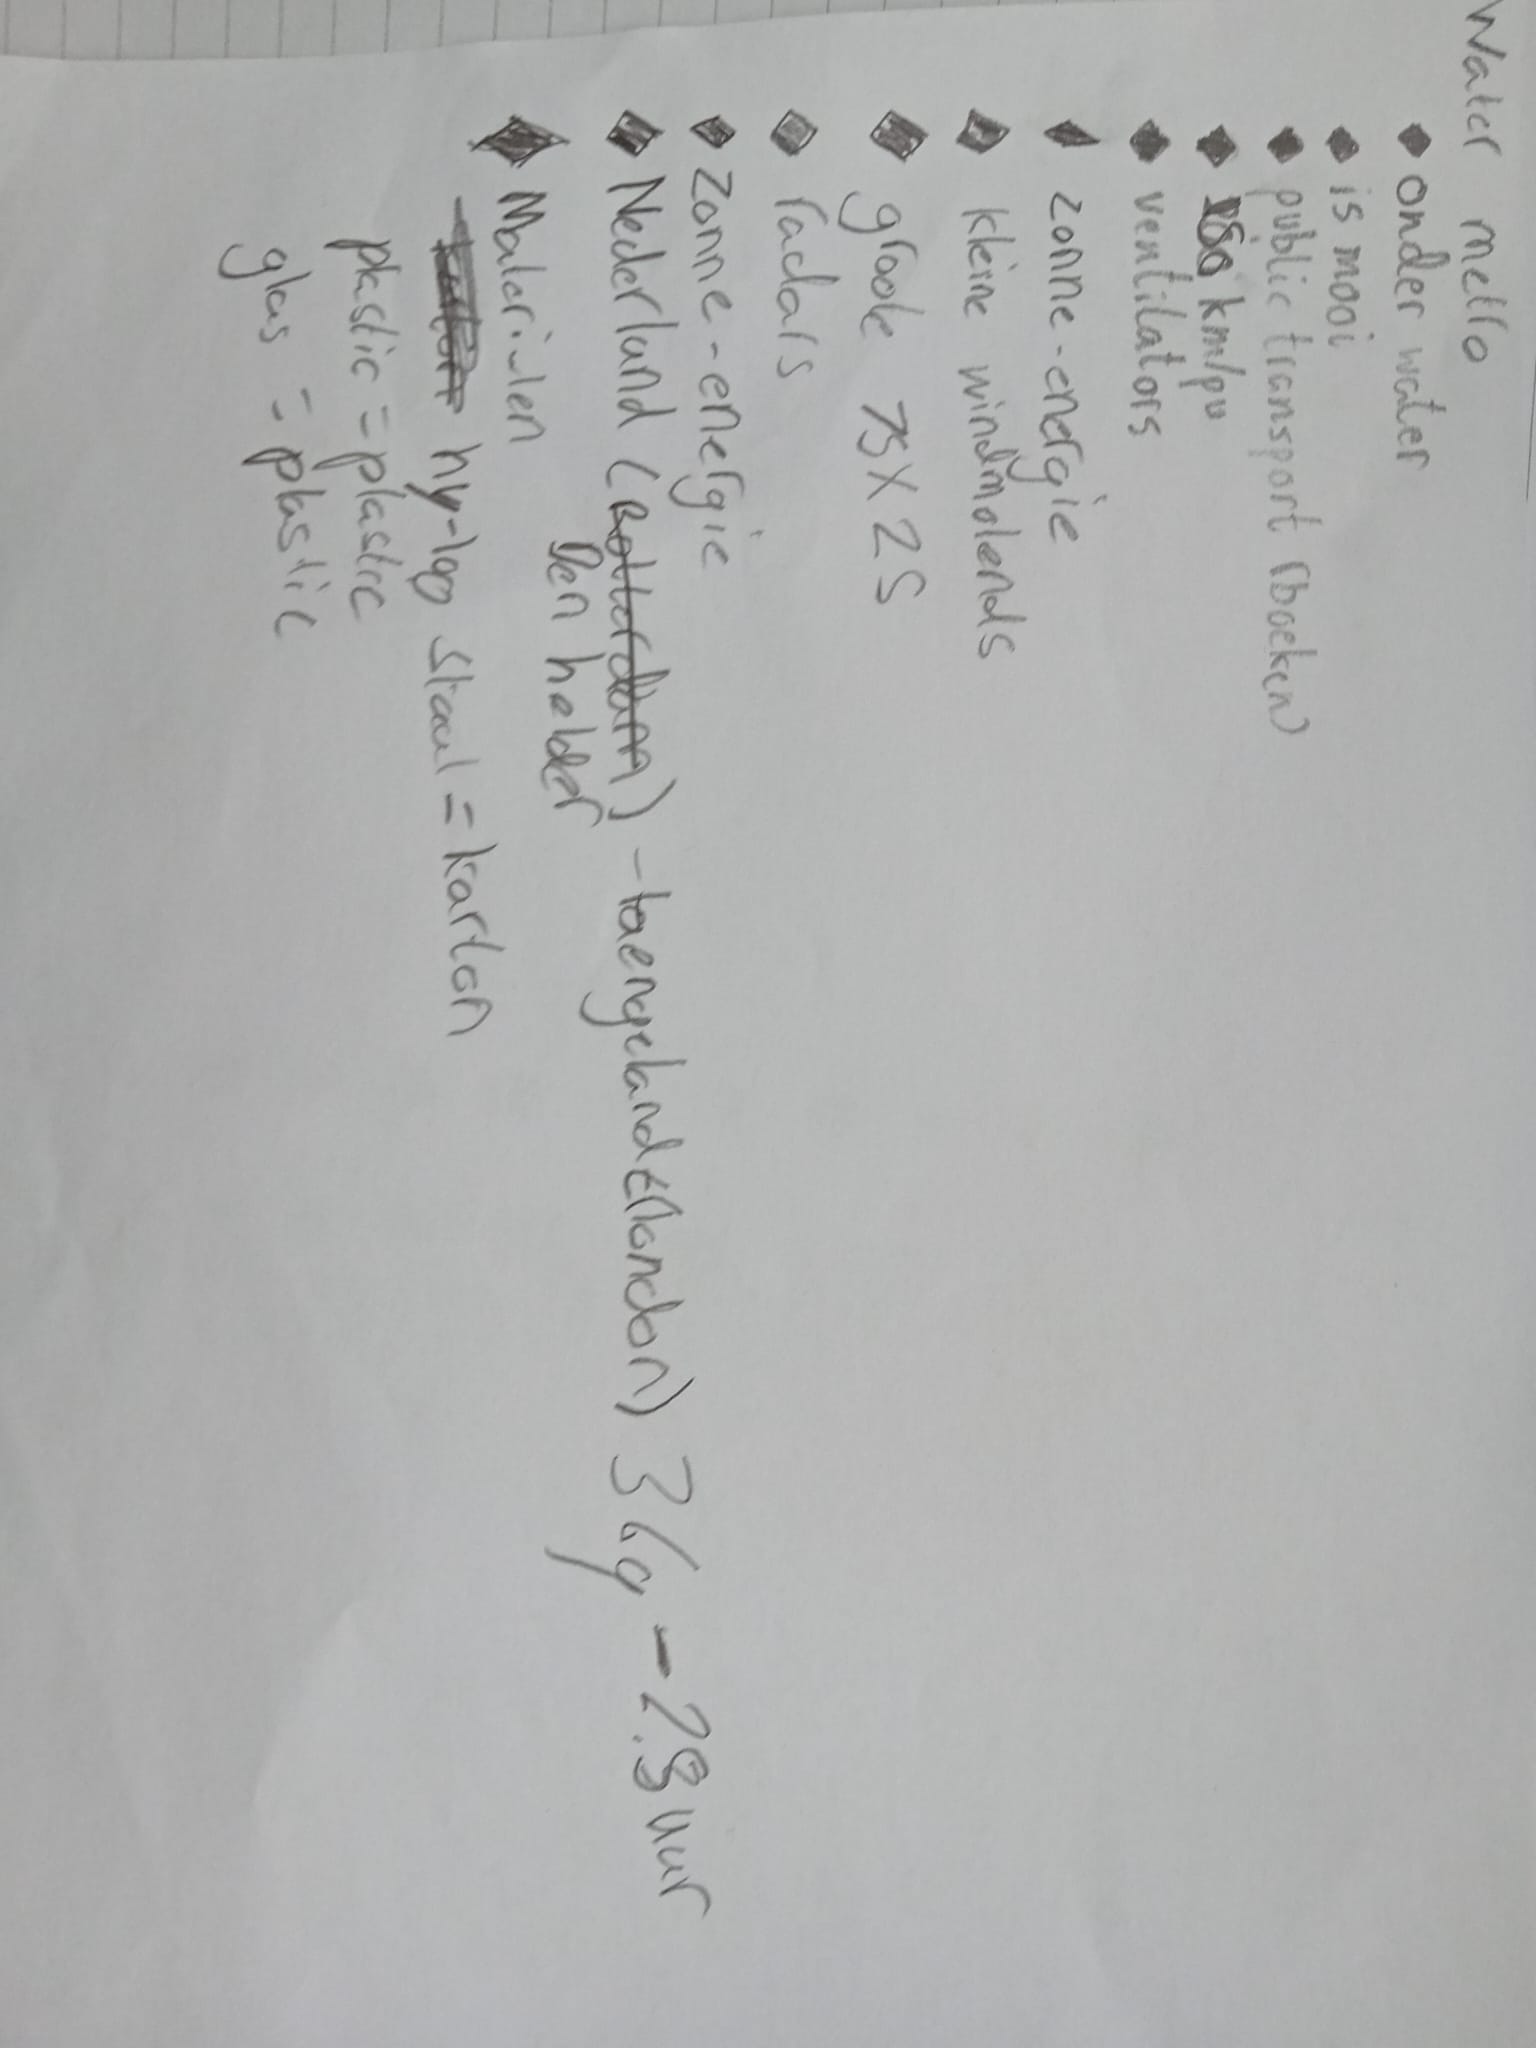 Water mello
onder water
is mooi
public transport (boeken)
km/pu
ventilators
zonne-energie
kleine windmolends
groote 75X25
radars
zonne-energie
Nederland (Rotterdam) - taengeland (london) 364 - 2.8 uur
Den helder
Materi-len
hy-loo staal = karton
plastic = plastic
glas = plastic